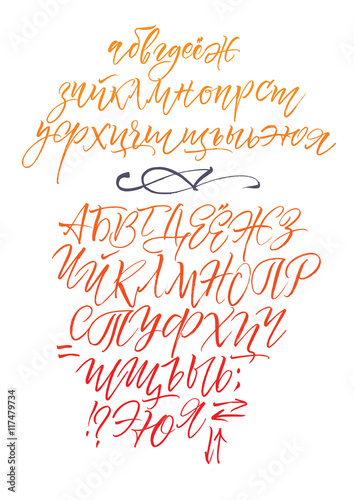 абвгдеёж
зийклмнопрст
уфрхцчшщъыьэюя
АБВГДЕЁЖЗ
ИЙКЛМНОПР
СТУФХЦЧ
=ШЩЪЫЬ;
!?ЭЮЯ
Adobe Stock | #117479734